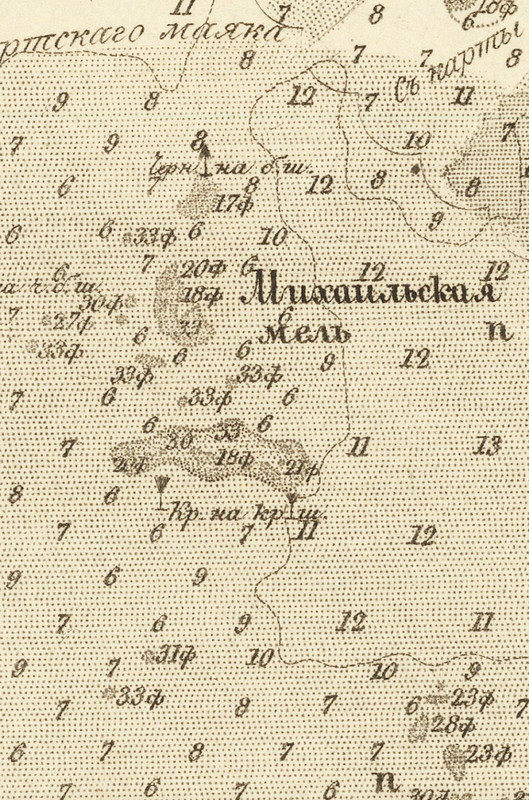 11 7 8 10ф
6
ртскаго маяка
8 7 7 8
Съ карты
9 8 12 7 11
7 9 8 10 7
Черн. на б. ш.
6 7 8 12 8 8
17ф
9
6 6 33ф 6 10
7 20ф 6 12 12
6
на ч. б. ш.
18ф Михаильская
30ф
7 27ф 33 6
мель п
33ф 6 6 6 9 12
33ф 33ф
7 6 33ф 6
6 33 6
7 30 11 13
18ф 21ф
8 6
Кр. на кр. ш.
7 6 7 11 12
9 6 9
7 6 9 12 11
31ф
9 7 10 10 9
33ф 23ф
7 8 7 6 7
28ф
6 7 8 7 7 23ф
п
7 6 7 6 30ф